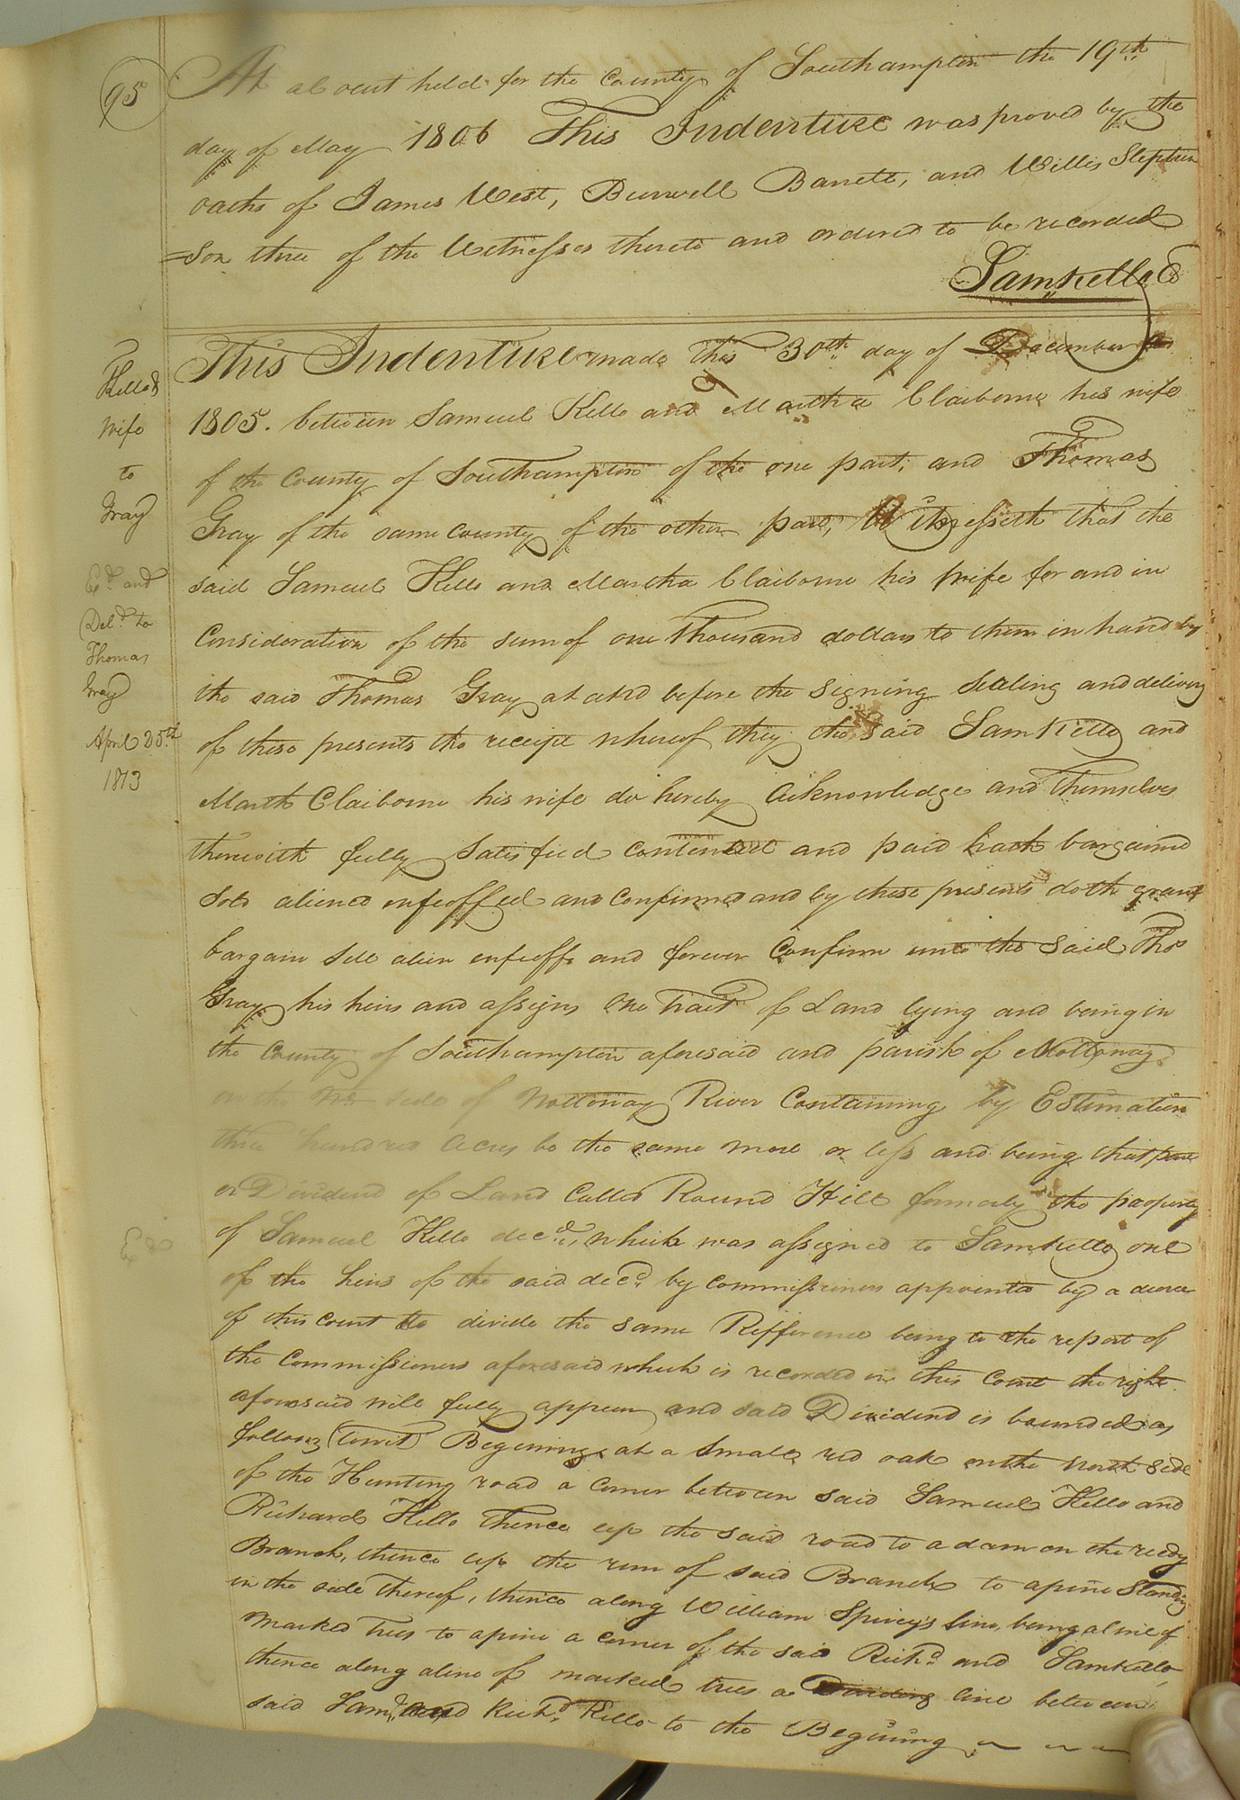 95
At a Court held for the County of Southampton the 19th
day of May 1806 This Indenture was proved by the
oaths of James West, Burwell Barrett, and Willis Stephen
=son three of the Witnesses thereto and ordered to be recorded
Sam Kello C
Kello &
Wife
to
Gray
Exd and
Deld to
Thomas
Gray
April 25th
1813
This Indenture made this 30th day of December
1805. between Samuel Kello and Martha Claiborne his wife
of the County of Southampton of the one part; and Thomas
Gray of the same County of the other part, Witnesseth that the
said Samuel Kello and Martha Claiborne his wife for and in
Consideration of the sum of one thousand dollars to them in hand by
the said Thomas Gray at and before the Signing Sealing and delivery
of these presents the receipt whereof they the said Sam Kello and
Marth Claiborne his wife do hereby Acknowledge and themselves
therewith fully Satisfied contented and paid hath bargained
Sold aliened enfeoffed and confirmed and by these presents doth grant
bargain Sell alien enfeoff and forever Confirm unto the Said Thos
Gray his heirs and assigns One tract of Land lying and being in
the County of Southampton aforesaid and parish of Nottoway
on the side of Nottoway River Containing by Estimation
three hundred acres be the same more or less and being that part
or Dividend of Land Called Round Hill formerly the property
of Samuel Kello decd, which was assigned to Sam Kello one
of the heirs of the said decd by commissioners appointed by a decree
of this court to divide the same Refference being to the report of
the Commissioners aforesaid which is recorded in this Court the right
aforesaid will fully appear and said Dividend is bounded as
follows (towit) Begining at a Small red oak on the North side
of the Hunting road a corner between said Samuel Kello and
Richard Kello thence up the said road to a dam on the reedy
Branch, thence up the run of said Branch to a pine Standing
in the side thereof, thence along William Spivey's line, being a line of
marked trees to a pine a corner of the said Richd and Sam Kello,
thence along a line of marked trees a Dividing line between
said Saml and Richd Kello to the Begining